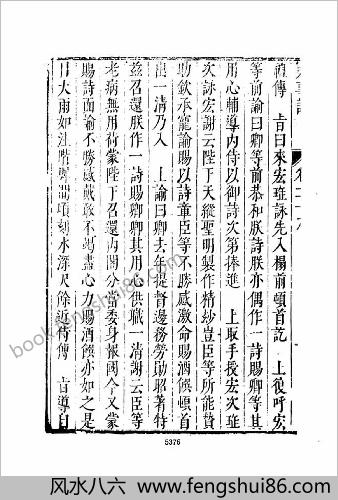 禮傳　旨曰朱宏班詠先入楊前頓首訖　上後呼宏
等前諭曰卿等前恭和朕詩朕亦偶作一詩賜卿等其
用心輔導內侍以御詩次第捧進　上取手授宏次班
次詠宏謝云陛下天縱聖明製作精妙豈臣等所能贊
助欽承寵諭賜以詩章臣等不勝感激命賜酒饌頓首
出一清乃入　上諭曰卿去年提督邊務勞勛昭著特
茲召還朕作一詩賜卿卿其用心供職一清謝云臣等
老病無用荷蒙陛下召還內閣分當委身報國今又蒙
賜詩面諭不勝感戴敢不竭盡心力賜酒饌亦如之是
日大雨如注階堺間頃刻水深尺餘近侍傳　旨導自
book.fengshui86.com
5376
风水八六 www.fengshui86.com